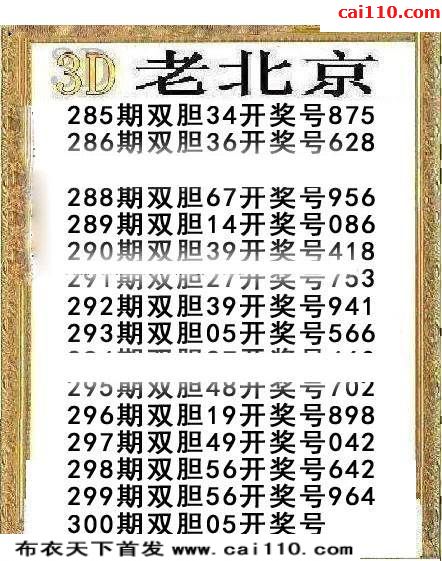 cai110.com
3D 老北京
285期双胆34开奖号875
286期双胆36开奖号628
288期双胆67开奖号956
289期双胆14开奖号086
290期双胆39开奖号418
291期双胆27开奖号753
292期双胆39开奖号941
293期双胆05开奖号566
295期双胆48开奖号702
296期双胆19开奖号898
297期双胆49开奖号042
298期双胆56开奖号642
299期双胆56开奖号964
300期双胆05开奖号
布衣天下首发 www.cai110.com